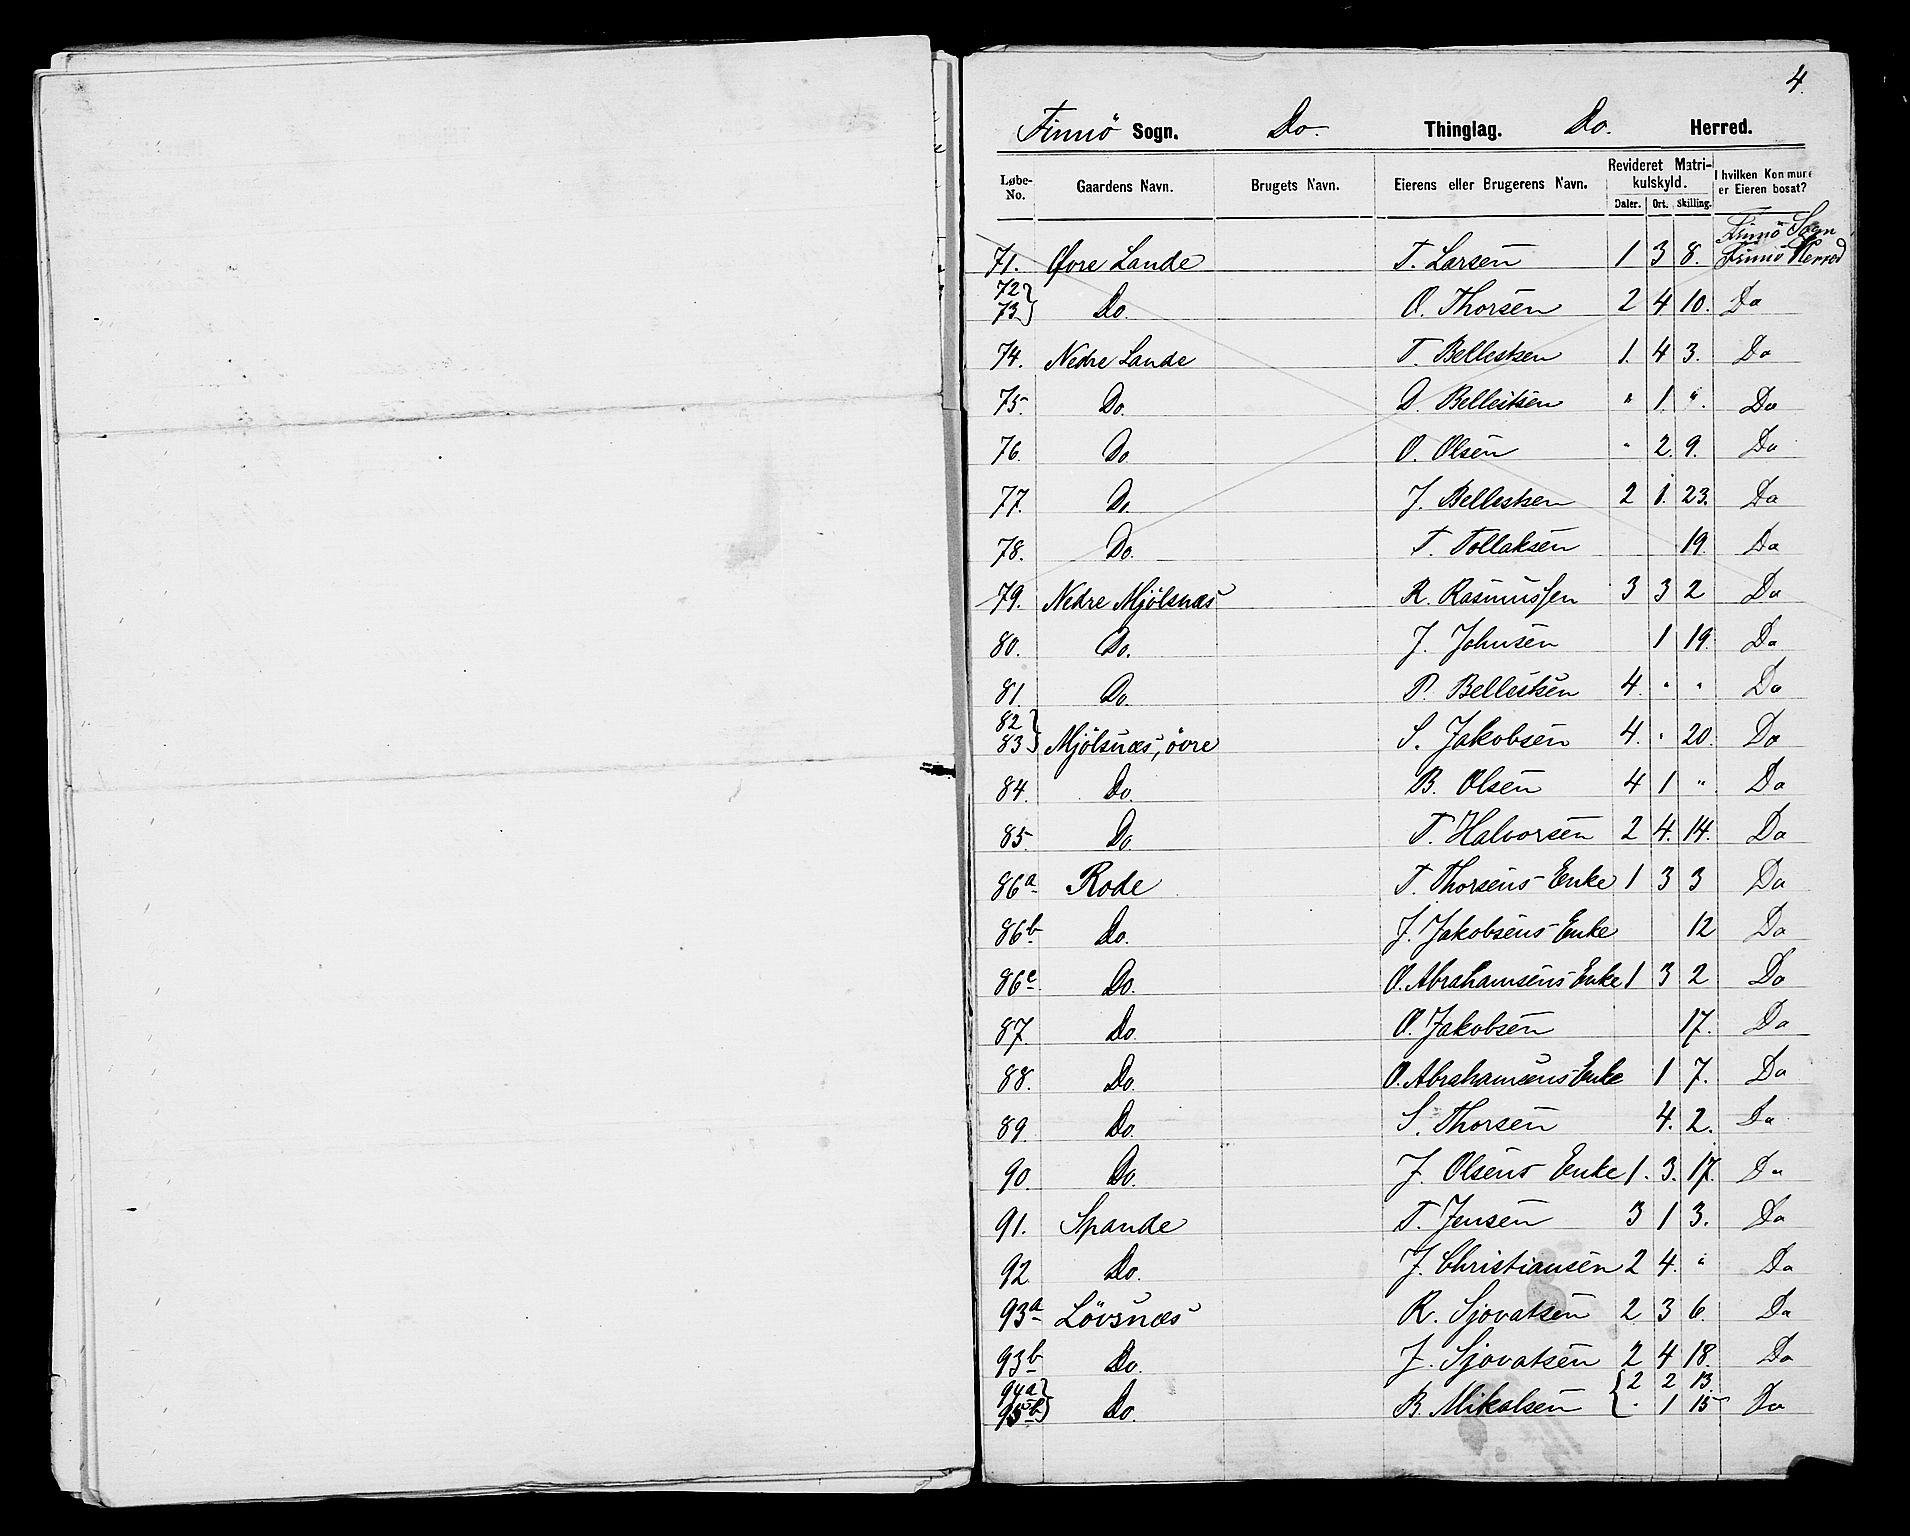 4.
Finnö Sogn. Do. Thinglag. Do. Herred.
Løbe-No. Gaardens Navn. Brugets Navn. Eierens eller Brugerens Navn. Revideret Matrikulskyld. Daler. Ort. Skilling. I hvilken Kommune er Eieren bosat?
Finnö Sogn
71. Øvre Lande T. Larsen 1 3 8. Finnö Herred
72 73} Do. O. Thorsen 2 4 10. Do
74. Nedre Lande T. Bellesken 1. 4 3. Do
75. Do. D. Belleiksen " 1. ". Do
76. Do O. Olsen " 2. 9. Do
77. Do. J. Bellesken 2 1. 23. Do
78. Do. T. Tollaksen 19. Do
79. Nedre Mjölsnæs R. Rasmussen 3 3 2 Do
80. Do. J. Johnsen 1 19. Do
81. Do. P. Belleiksen 4. " " Do
82 83} Mjölsnæs, övre S. Jakobsen 4. " 20. Do
84. Do. B. Olsen 4 1 " Do
85. Do. T. Halvorsen 2 4. 14. Do
86a Rode T. Thorsens Enke 1 3 3 Do
86b Do. J. Jakobsens Enke 12 Do
86c Do. O. Abrahamsens Enke 1 3 2 Do
87. Do. O. Jakobsen 17. Do
88. Do. O. Abrahamsens Enke 1 7. Do
89. Do. S. Thorsen 4. 2. Do
90. Do. J. Olsens Enke 1. 3. 17. Do
91. Spande T. Jensen 3 1 3. Do
92. Do. J. Christiansen 2 4. " Do
93a Lövsnæs R. Sjovatsen 2 3 6. Do
93b Do. J. Sjovatsen 2 4 18. Do
94a} { 2 2 13.
95b} Do. B. Mikalsen { " 1 15 Do